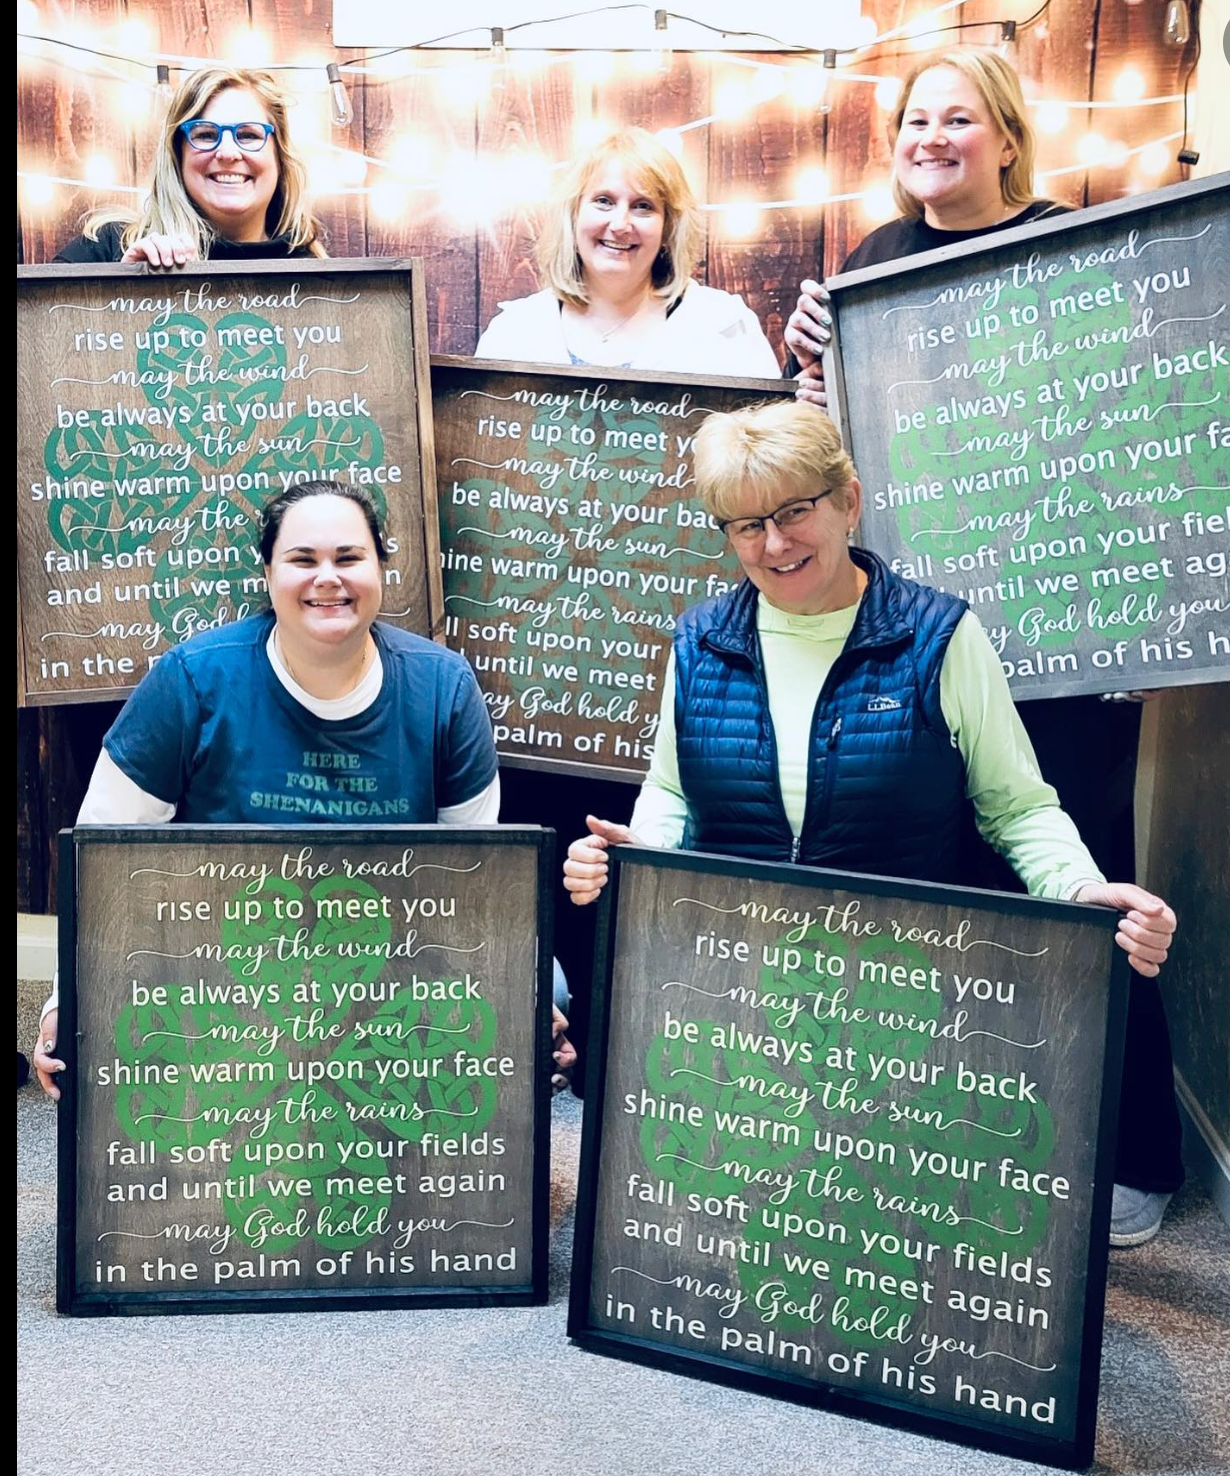 may the road
rise up to meet you
may the wind
be always at your back
may the sun
shine warm upon your face
may the
fall soft upon
and until we
may God
in the
may the road
rise up to meet
may the wind
be always at your
may the sun
warm upon your
may the rains
soft upon your
until we meet
God hold
palm of his
may the road
rise up to meet you
may the wind
be always at your back
may the sun
shine warm upon your
may the rains
fall soft upon your
until we meet
God hold you
palm of his
HERE
FOR THE
SHENANIGANS
L.L.Bean
may the road
rise up to meet you
may the wind
be always at your back
may the sun
shine warm upon your face
may the rains
fall soft upon your fields
and until we meet again
may God hold you
in the palm of his hand
may the road
rise up to meet you
may the wind
be always at your back
may the sun
shine warm upon your face
may the rains
fall soft upon your fields
and until we meet again
may God hold you
in the palm of his hand